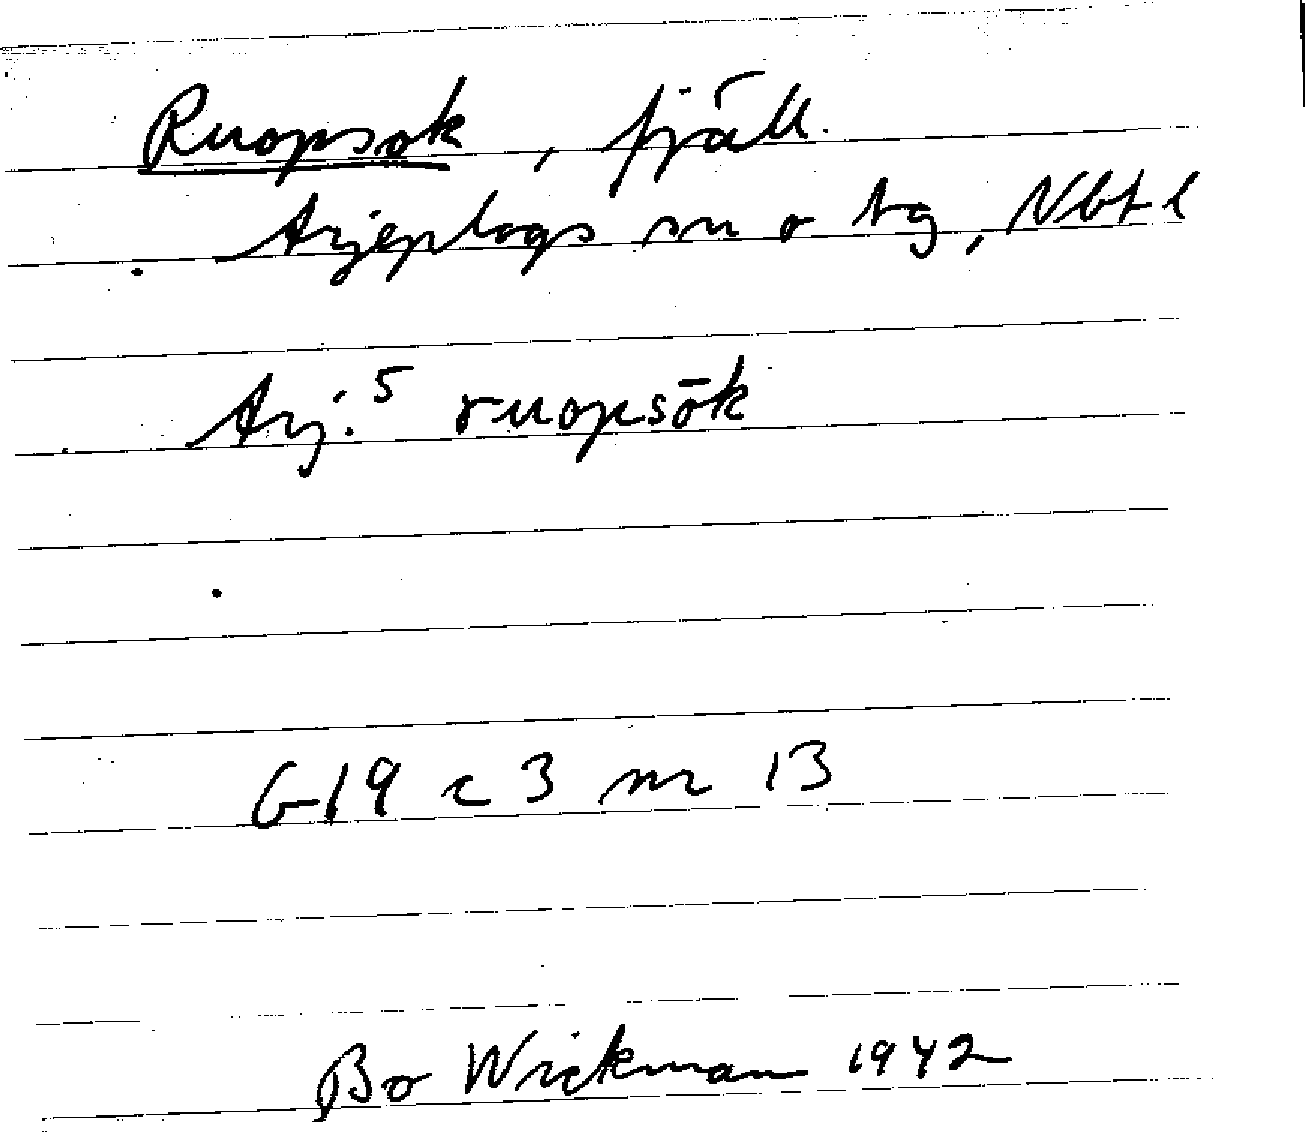 Ruopsok, fjäll.
Arjeplogs sn o tg, Nbt l
Arj.⁵ ruopsōk
G19 c 3 nr 13
Bo Wickman 1942